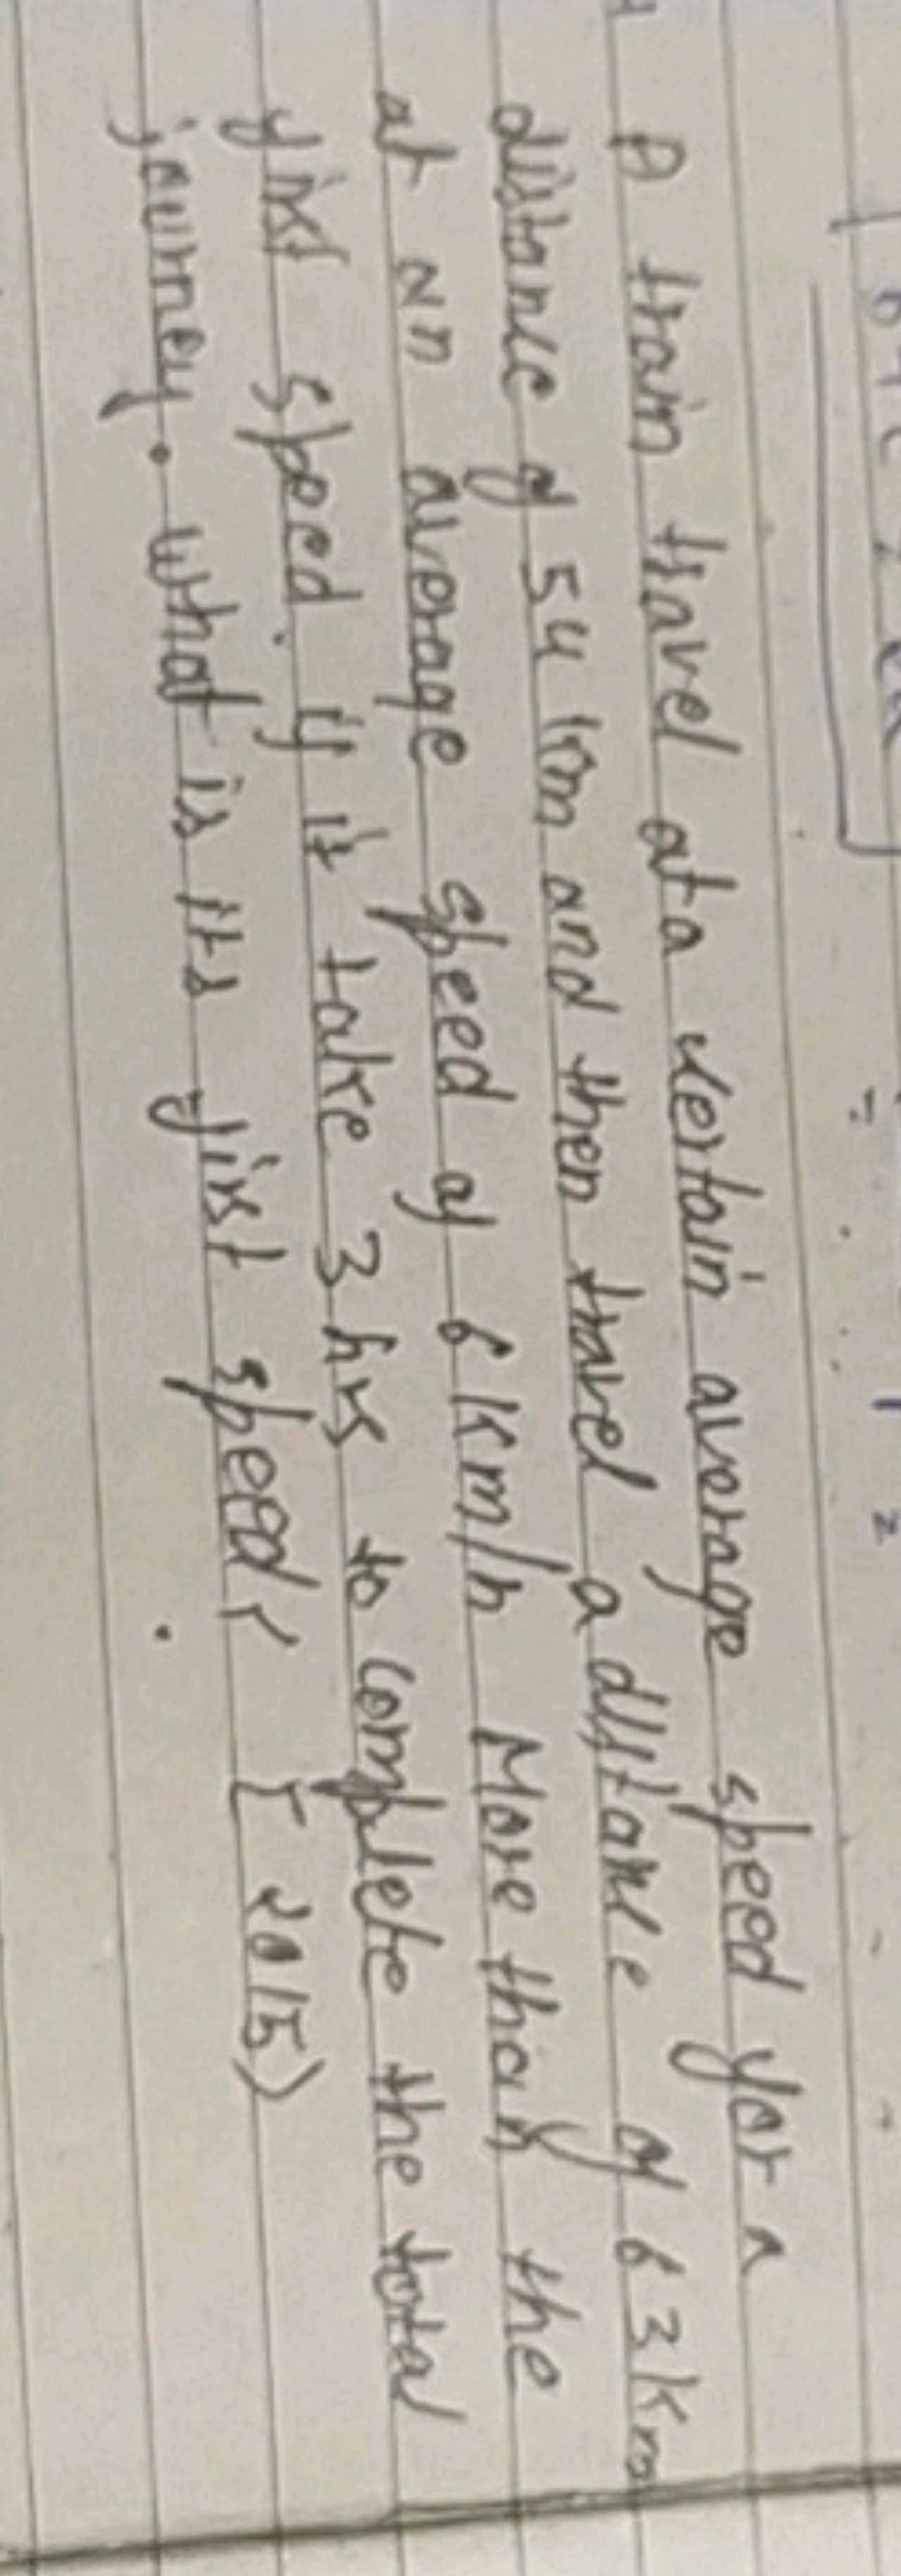 A train travel at a certain average speed for a
distance of 54 km and then travel a distance of 63 km
at an average speed of 6 km/h More than the
first speed. if it take 3 hrs to complete the total
journey. what is its first speed? [2015)